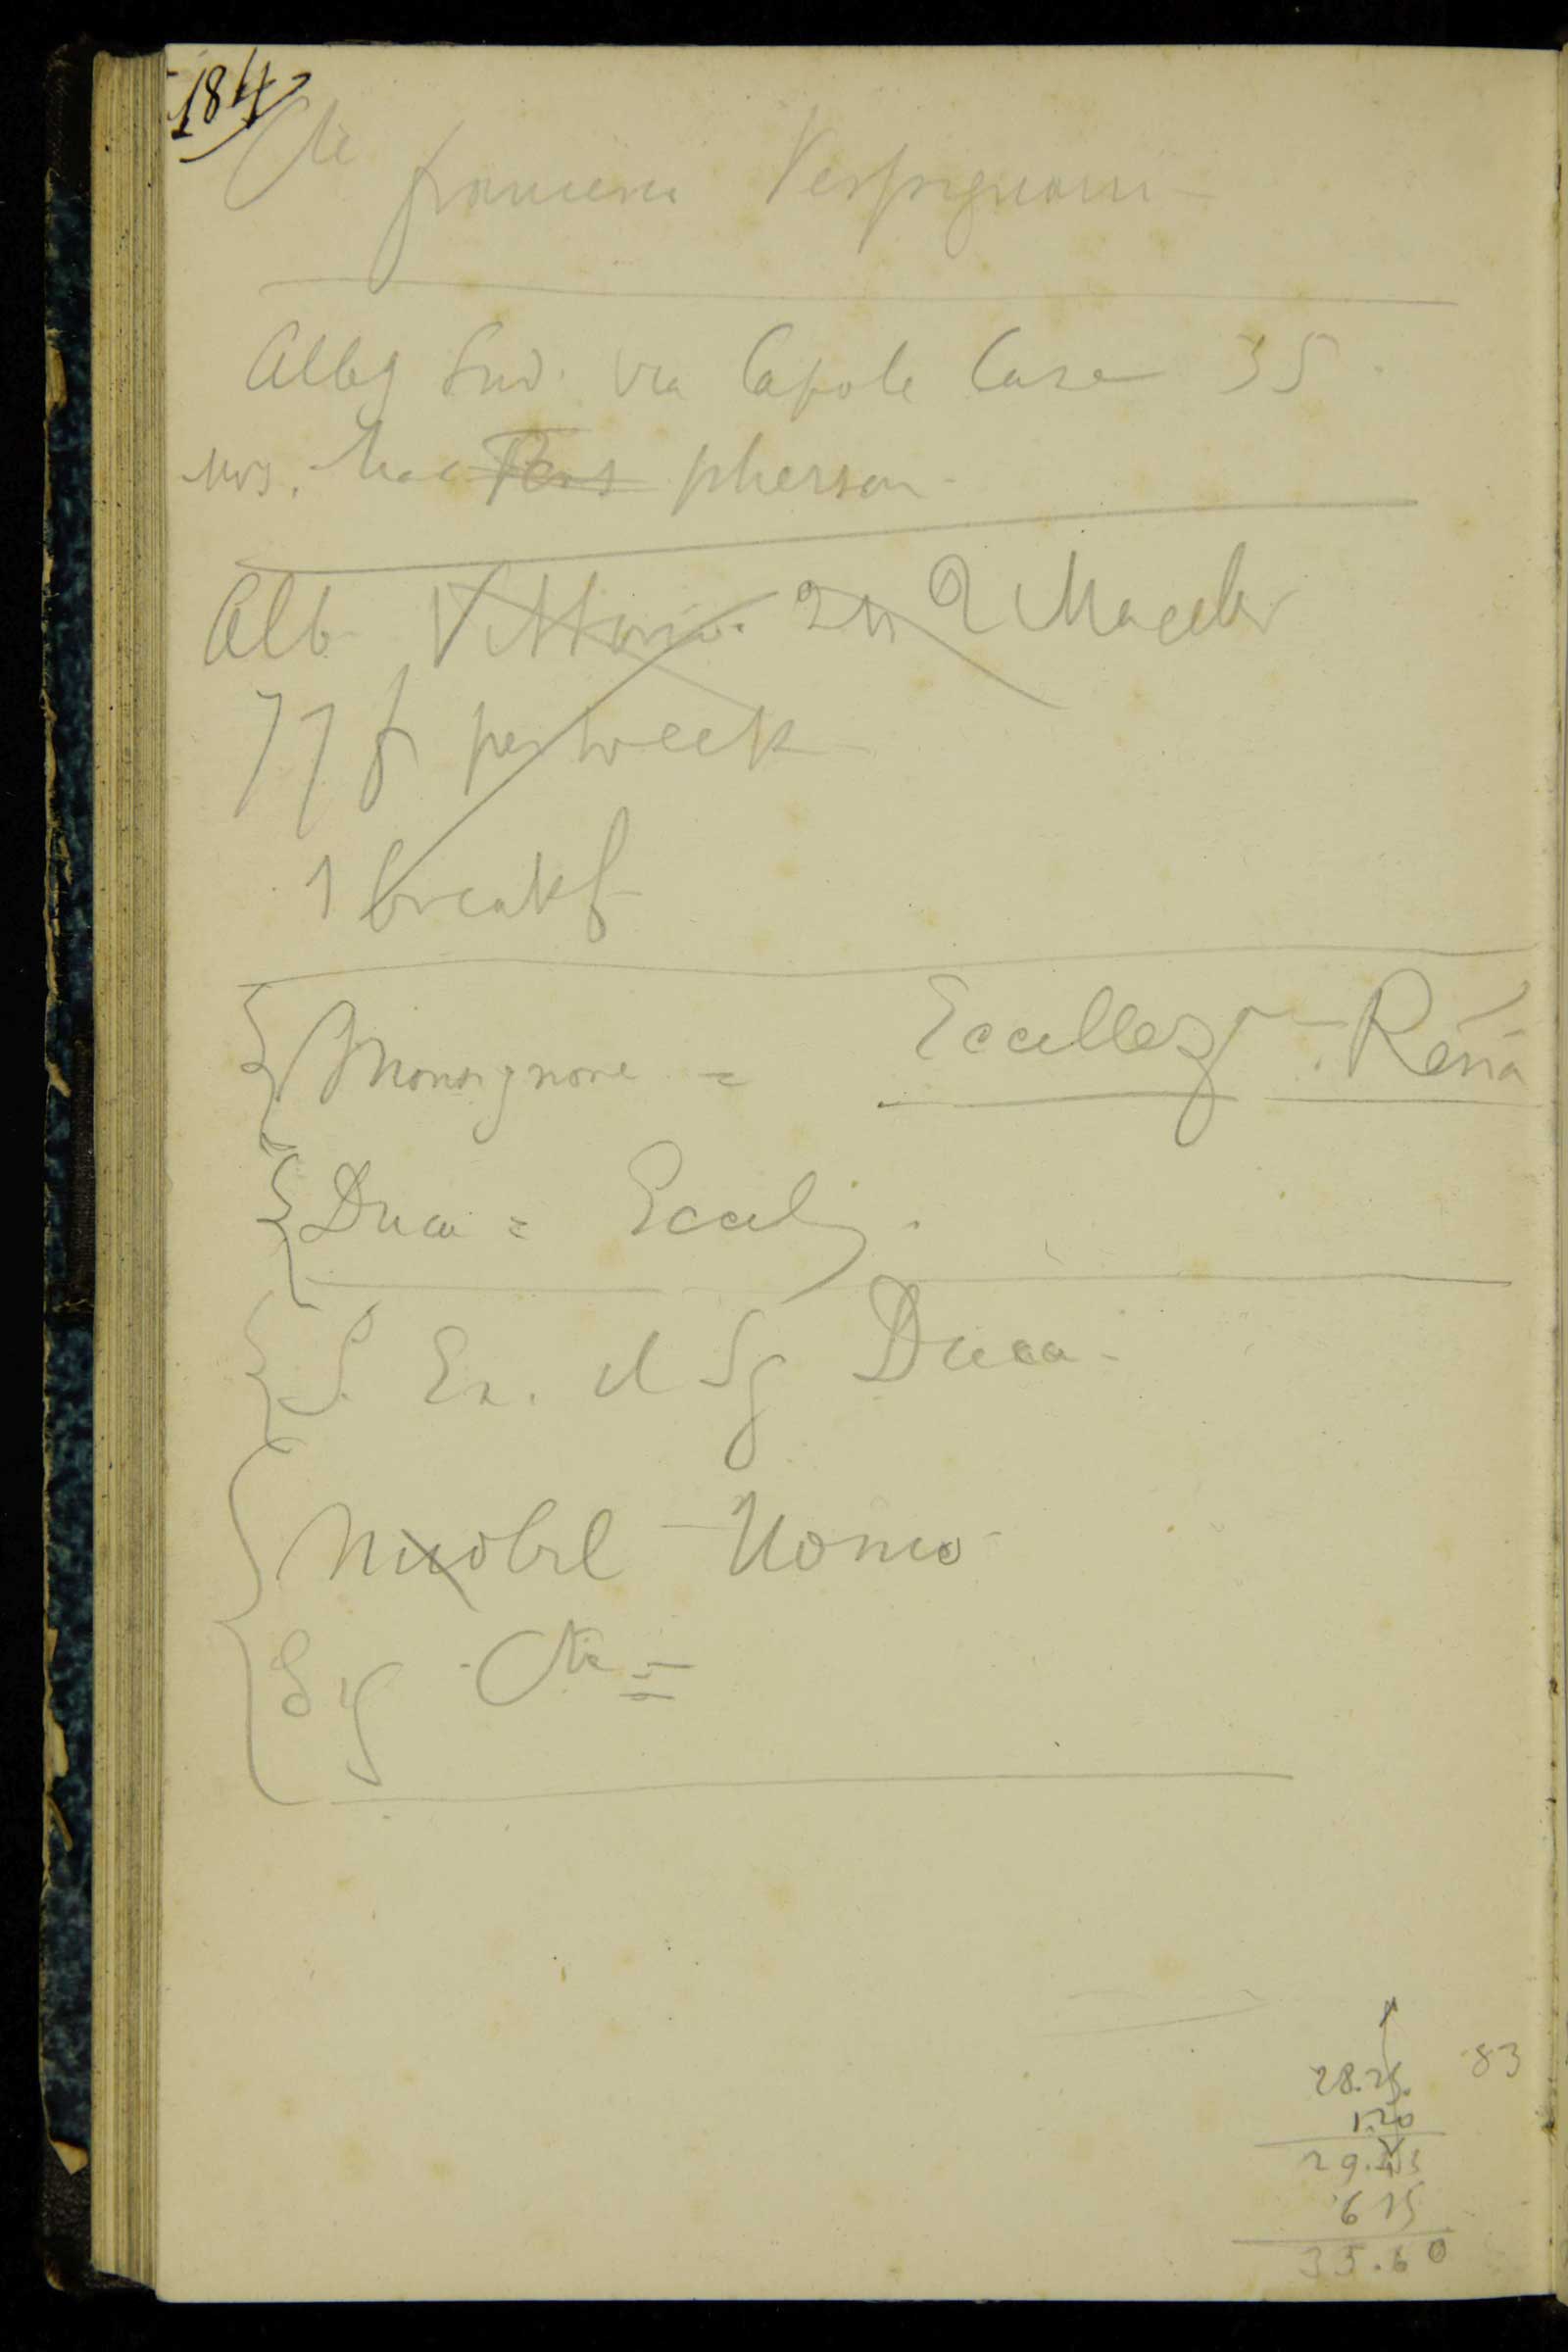 184
Cte
Vespignani
Alb Sud. via Capole Case 35.
Mrs. Mac Pers pherson
Alb Vittoria. 24 2 Macelli
77 f per week
1 breakf
Monsignore = Eccellez
Duca = Eccel
S. Ex. il Sg Duca
Nuobil Uomo
Sig Cte =
83
28.25.
120
29.45
615
35.60